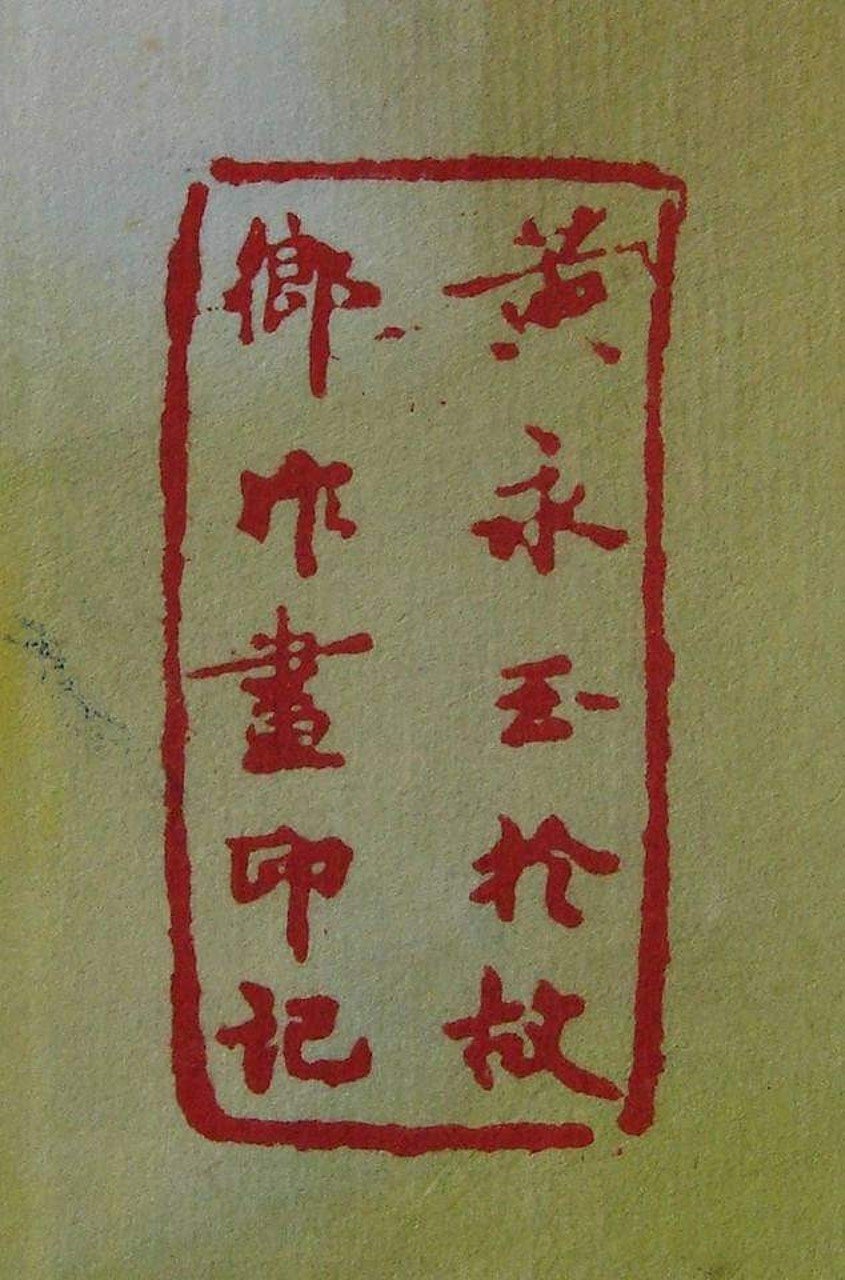 黃永玉於故
鄉作畫印記